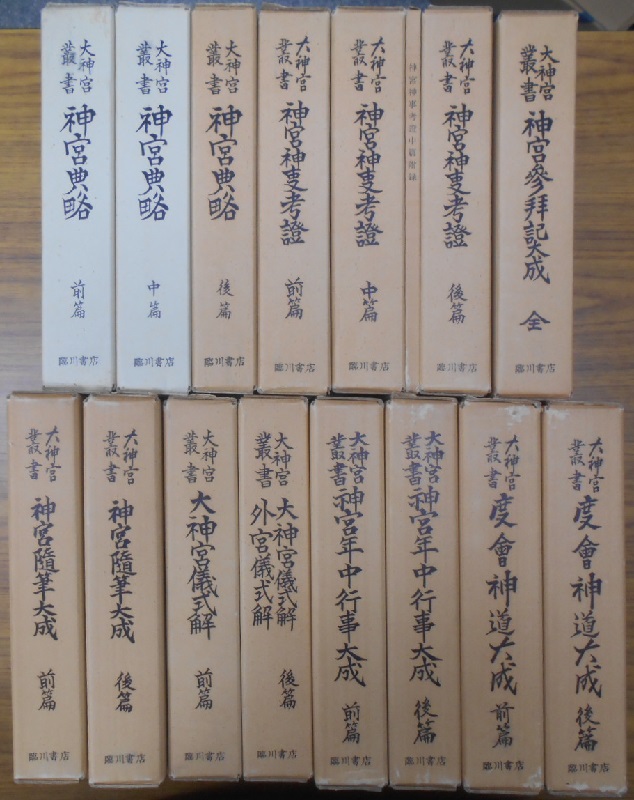 大神宮叢書
神宮典略
前篇
臨川書店
大神宮叢書
神宮典略
中篇
臨川書店
大神宮叢書
神宮典略
後篇
臨川書店
大神宮叢書
神宮神事考證
前篇
臨川書店
大神宮叢書
神宮神事考證
中篇
臨川書店
神宮神事考證中篇附録
大神宮叢書
神宮神事考證
後篇
臨川書店
大神宮叢書
神宮參拜記大成
全
臨川書店
大神宮叢書
神宮隨筆大成
前篇
臨川書店
大神宮叢書
神宮隨筆大成
後篇
臨川書店
大神宮叢書
大神宮儀式解
前篇
臨川書店
大神宮叢書
大神宮儀式解
外宮儀式解
後篇
臨川書店
大神宮叢書
神宮年中行事大成
前篇
臨川書店
大神宮叢書
神宮年中行事大成
後篇
臨川書店
大神宮叢書
度會神道大成
前篇
臨川書店
大神宮叢書
度會神道大成
後篇
臨川書店